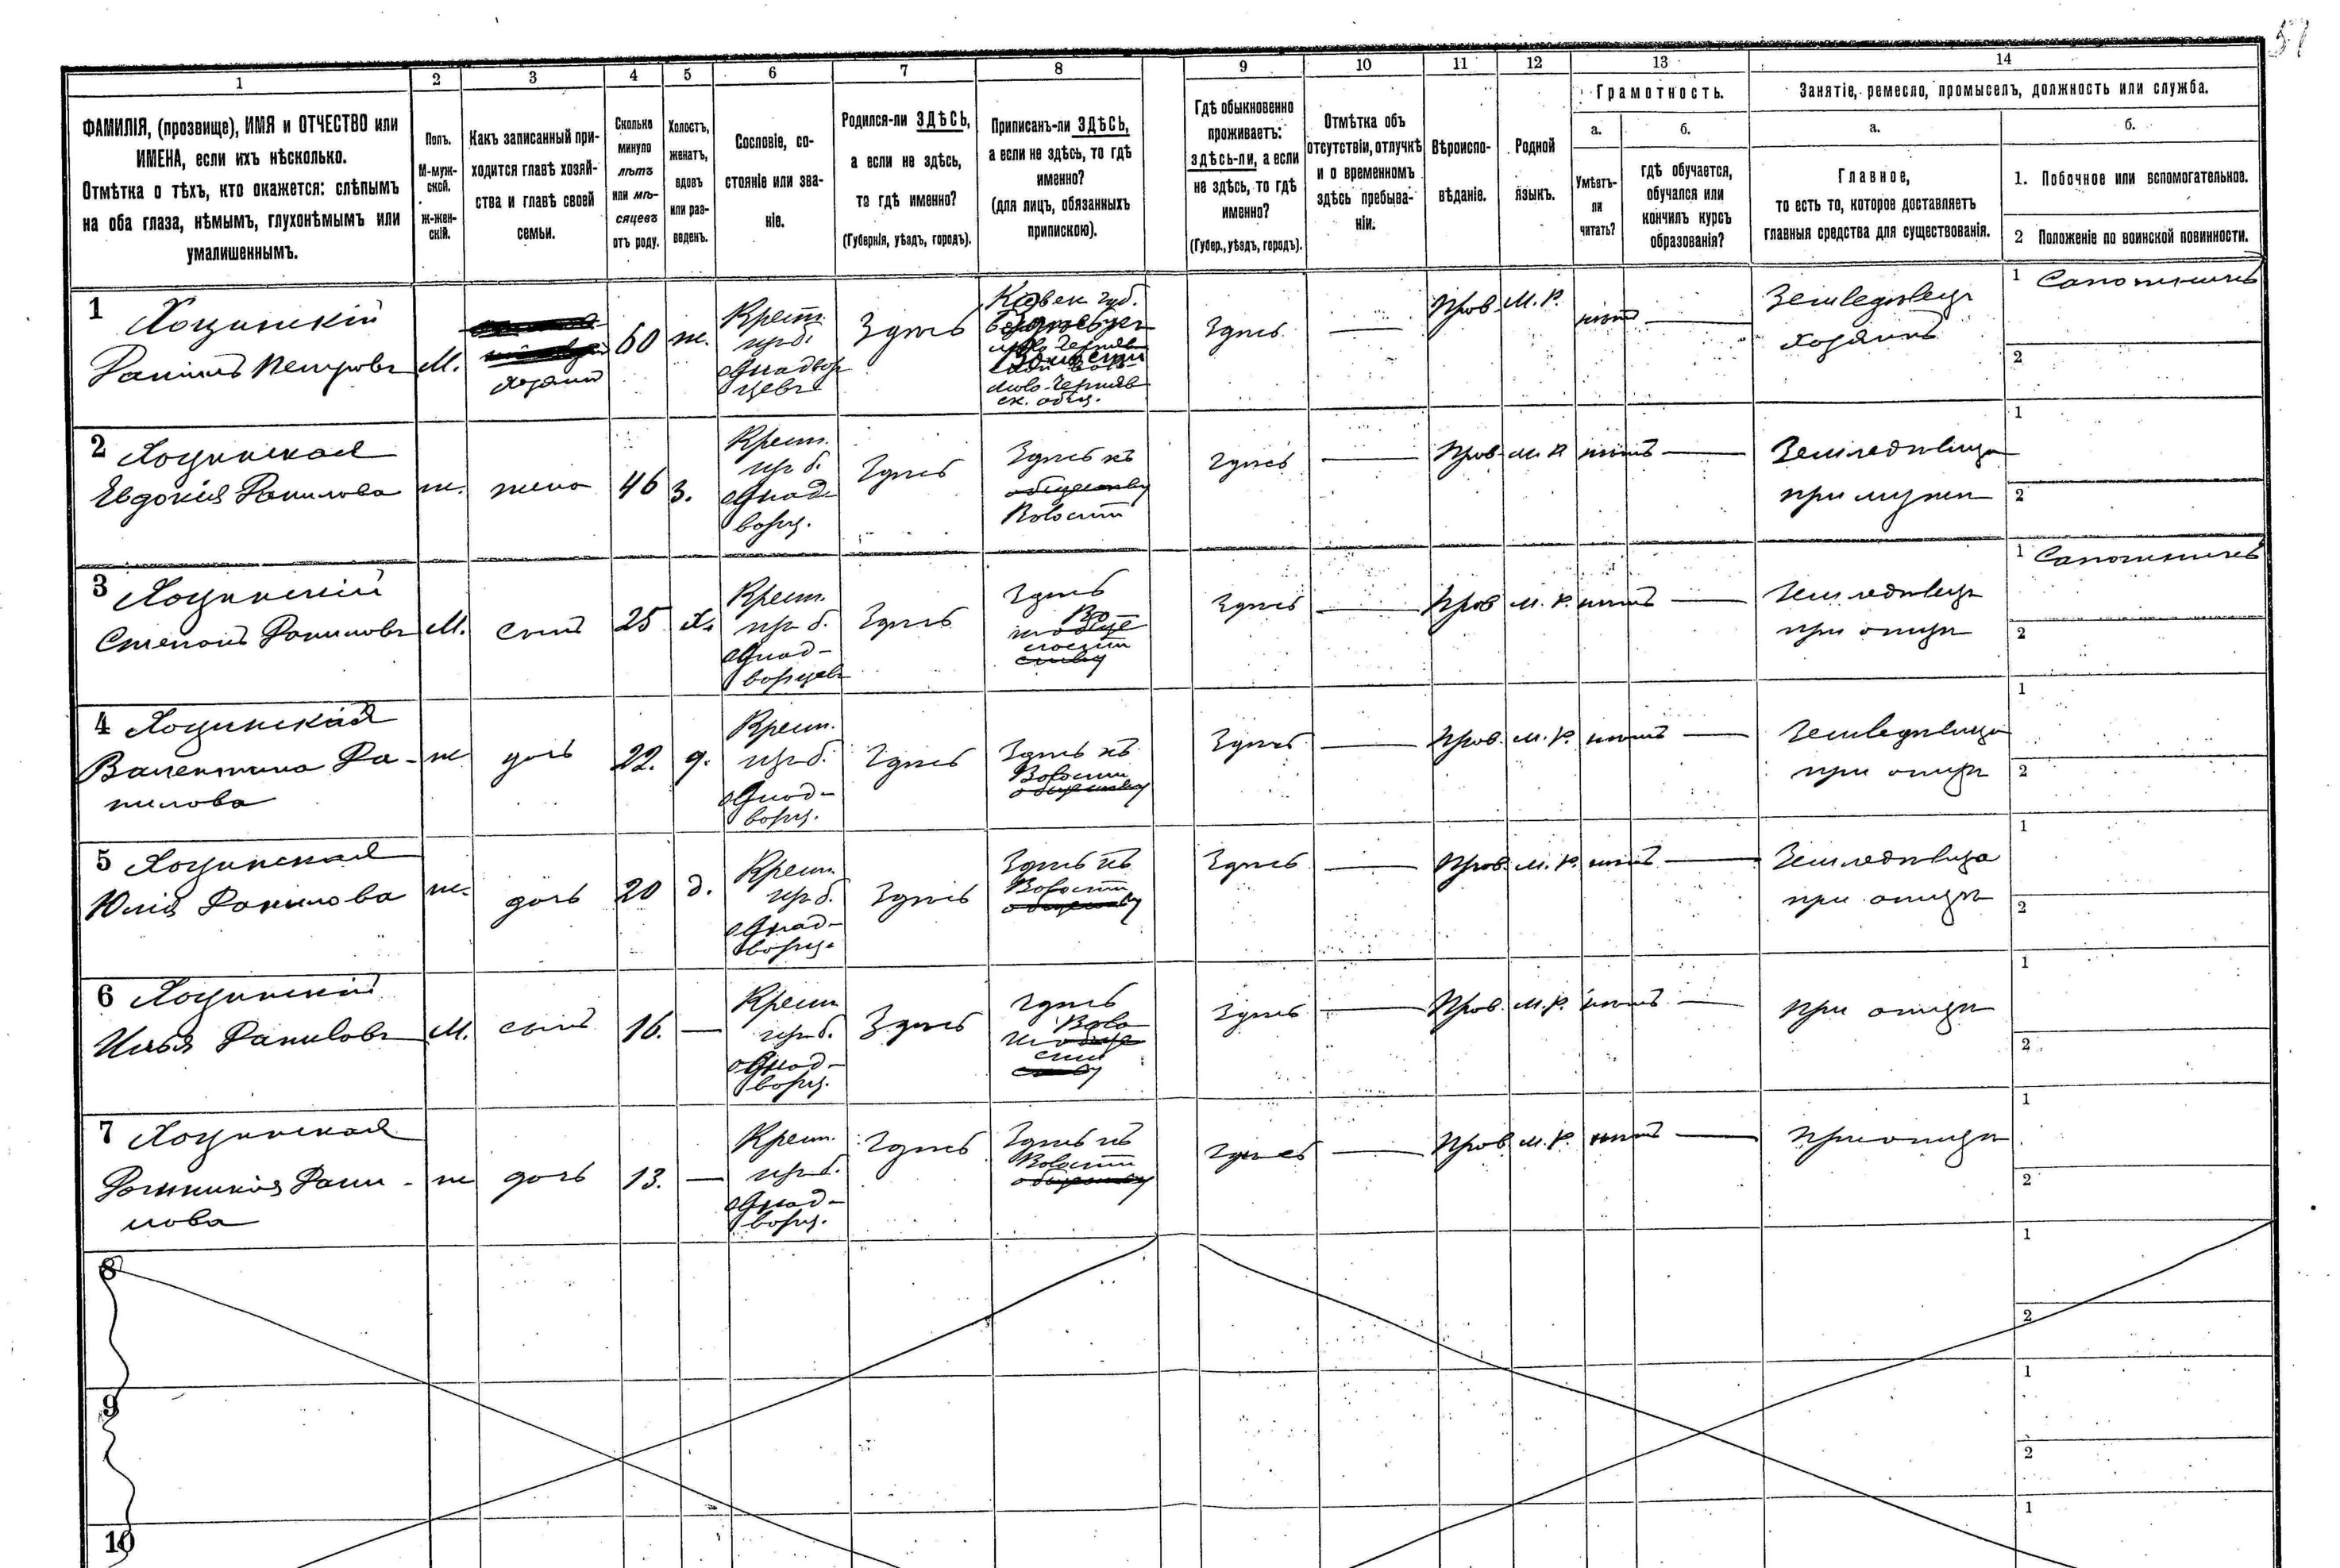 57
1 2 3 4 5 6 7 8 9 10 11 12 13 14
ФАМИЛІЯ, (прозвище), ИМЯ и ОТЧЕСТВО или
ИМЕНА, если ихъ нѣсколько.
Отмѣтка о тѣхъ, кто окажется: слѣпымъ
на оба глаза, нѣмымъ, глухонѣмымъ или
умалишеннымъ.
Полъ.
М-муж-
ской.
Ж-жен-
скій.
Какъ записанный при-
ходится главѣ хозяй-
ства и главѣ своей
семьи.
Сколько
минуло
лѣтъ
или мѣ-
сяцевъ
отъ роду.
Холостъ,
женатъ,
вдовъ
или раз-
веденъ.
Сословіе, со-
стояніе или зва-
ніе.
Родился-ли ЗДѢСЬ,
а если не здѣсь,
то гдѣ именно?
(Губернія, уѣздъ, городъ).
Приписанъ-ли ЗДѢСЬ,
а если не здѣсь, то гдѣ
именно?
(для лицъ, обязанныхъ
припискою).
Гдѣ обыкновенно
проживаетъ:
здѣсь-ли, а если
не здѣсь, то гдѣ
именно?
(Губер., уѣздъ, городъ).
Отмѣтка объ
отсутствіи, отлучкѣ
и о временномъ
здѣсь пребыва-
ніи.
Вѣроиспо-
вѣданіе.
Родной
языкъ.
Грамотность.
а.
Умѣетъ-
ли
читать?
б.
гдѣ обучается,
обучался или
кончилъ курсъ
образованія?
Занятіе, ремесло, промыселъ, должность или служба.
а.
Главное,
то есть то, которое доставляетъ
главныя средства для существованія.
б.
1. Побочное или вспомогательное.
2 Положеніе по воинской повинности.
1
Данилъ Петровъ
М.
хозяинъ
60
ж.
Крест.
из б.
однодвор
цевъ
Здѣсь
Здѣсь
Прав.
М. Р.
нѣтъ
Земледѣлецъ
хозяинъ
1 Сапожникъ
2
2
Евдокія Данилова
ж.
жена
46
з.
Крест.
из б.
однод
ворц.
Здѣсь
Здѣсь къ
обществу
Волости
Здѣсь
Прав.
М. Р.
нѣтъ
Земледѣлица
при мужѣ
1
2
3
Степанъ Даниловъ
М.
сынъ
25
х.
Крест.
из б.
однод-
ворцевъ
Здѣсь
Здѣсь
Здѣсь
Прав.
М. Р.
нѣтъ
Земледѣлецъ
при отцѣ
1 Сапожникъ
2
4
Валентина Да-
нилова
ж
дочь
22.
д.
Крест.
из б.
однод-
ворц.
Здѣсь
Здѣсь къ
Волости
обществу
Здѣсь
Прав.
М. Р.
нѣтъ
Земледѣлица
при отцѣ
1
2
5
Юлія Данилова
ж.
дочь
20
д.
Крест.
из б.
однод-
ворц.
Здѣсь
Здѣсь къ
Волости
обществу
Здѣсь
Прав.
М. Р.
нѣтъ
Земледѣлица
при отцѣ
1
2
6
Илья Даниловъ
М.
сынъ
16.
Крест.
из б.
однод-
ворц.
Здѣсь
Здѣсь
Здѣсь
Прав.
М. Р.
нѣтъ
при отцѣ
1
2
7
Дани-
лова
ж
дочь
13.
Крест.
из б.
однод-
ворц.
Здѣсь
Здѣсь къ
Волости
обществу
Здѣсь
Прав.
М. Р.
нѣтъ
при отцѣ
1
2
8
1
2
9
1
2
10
1